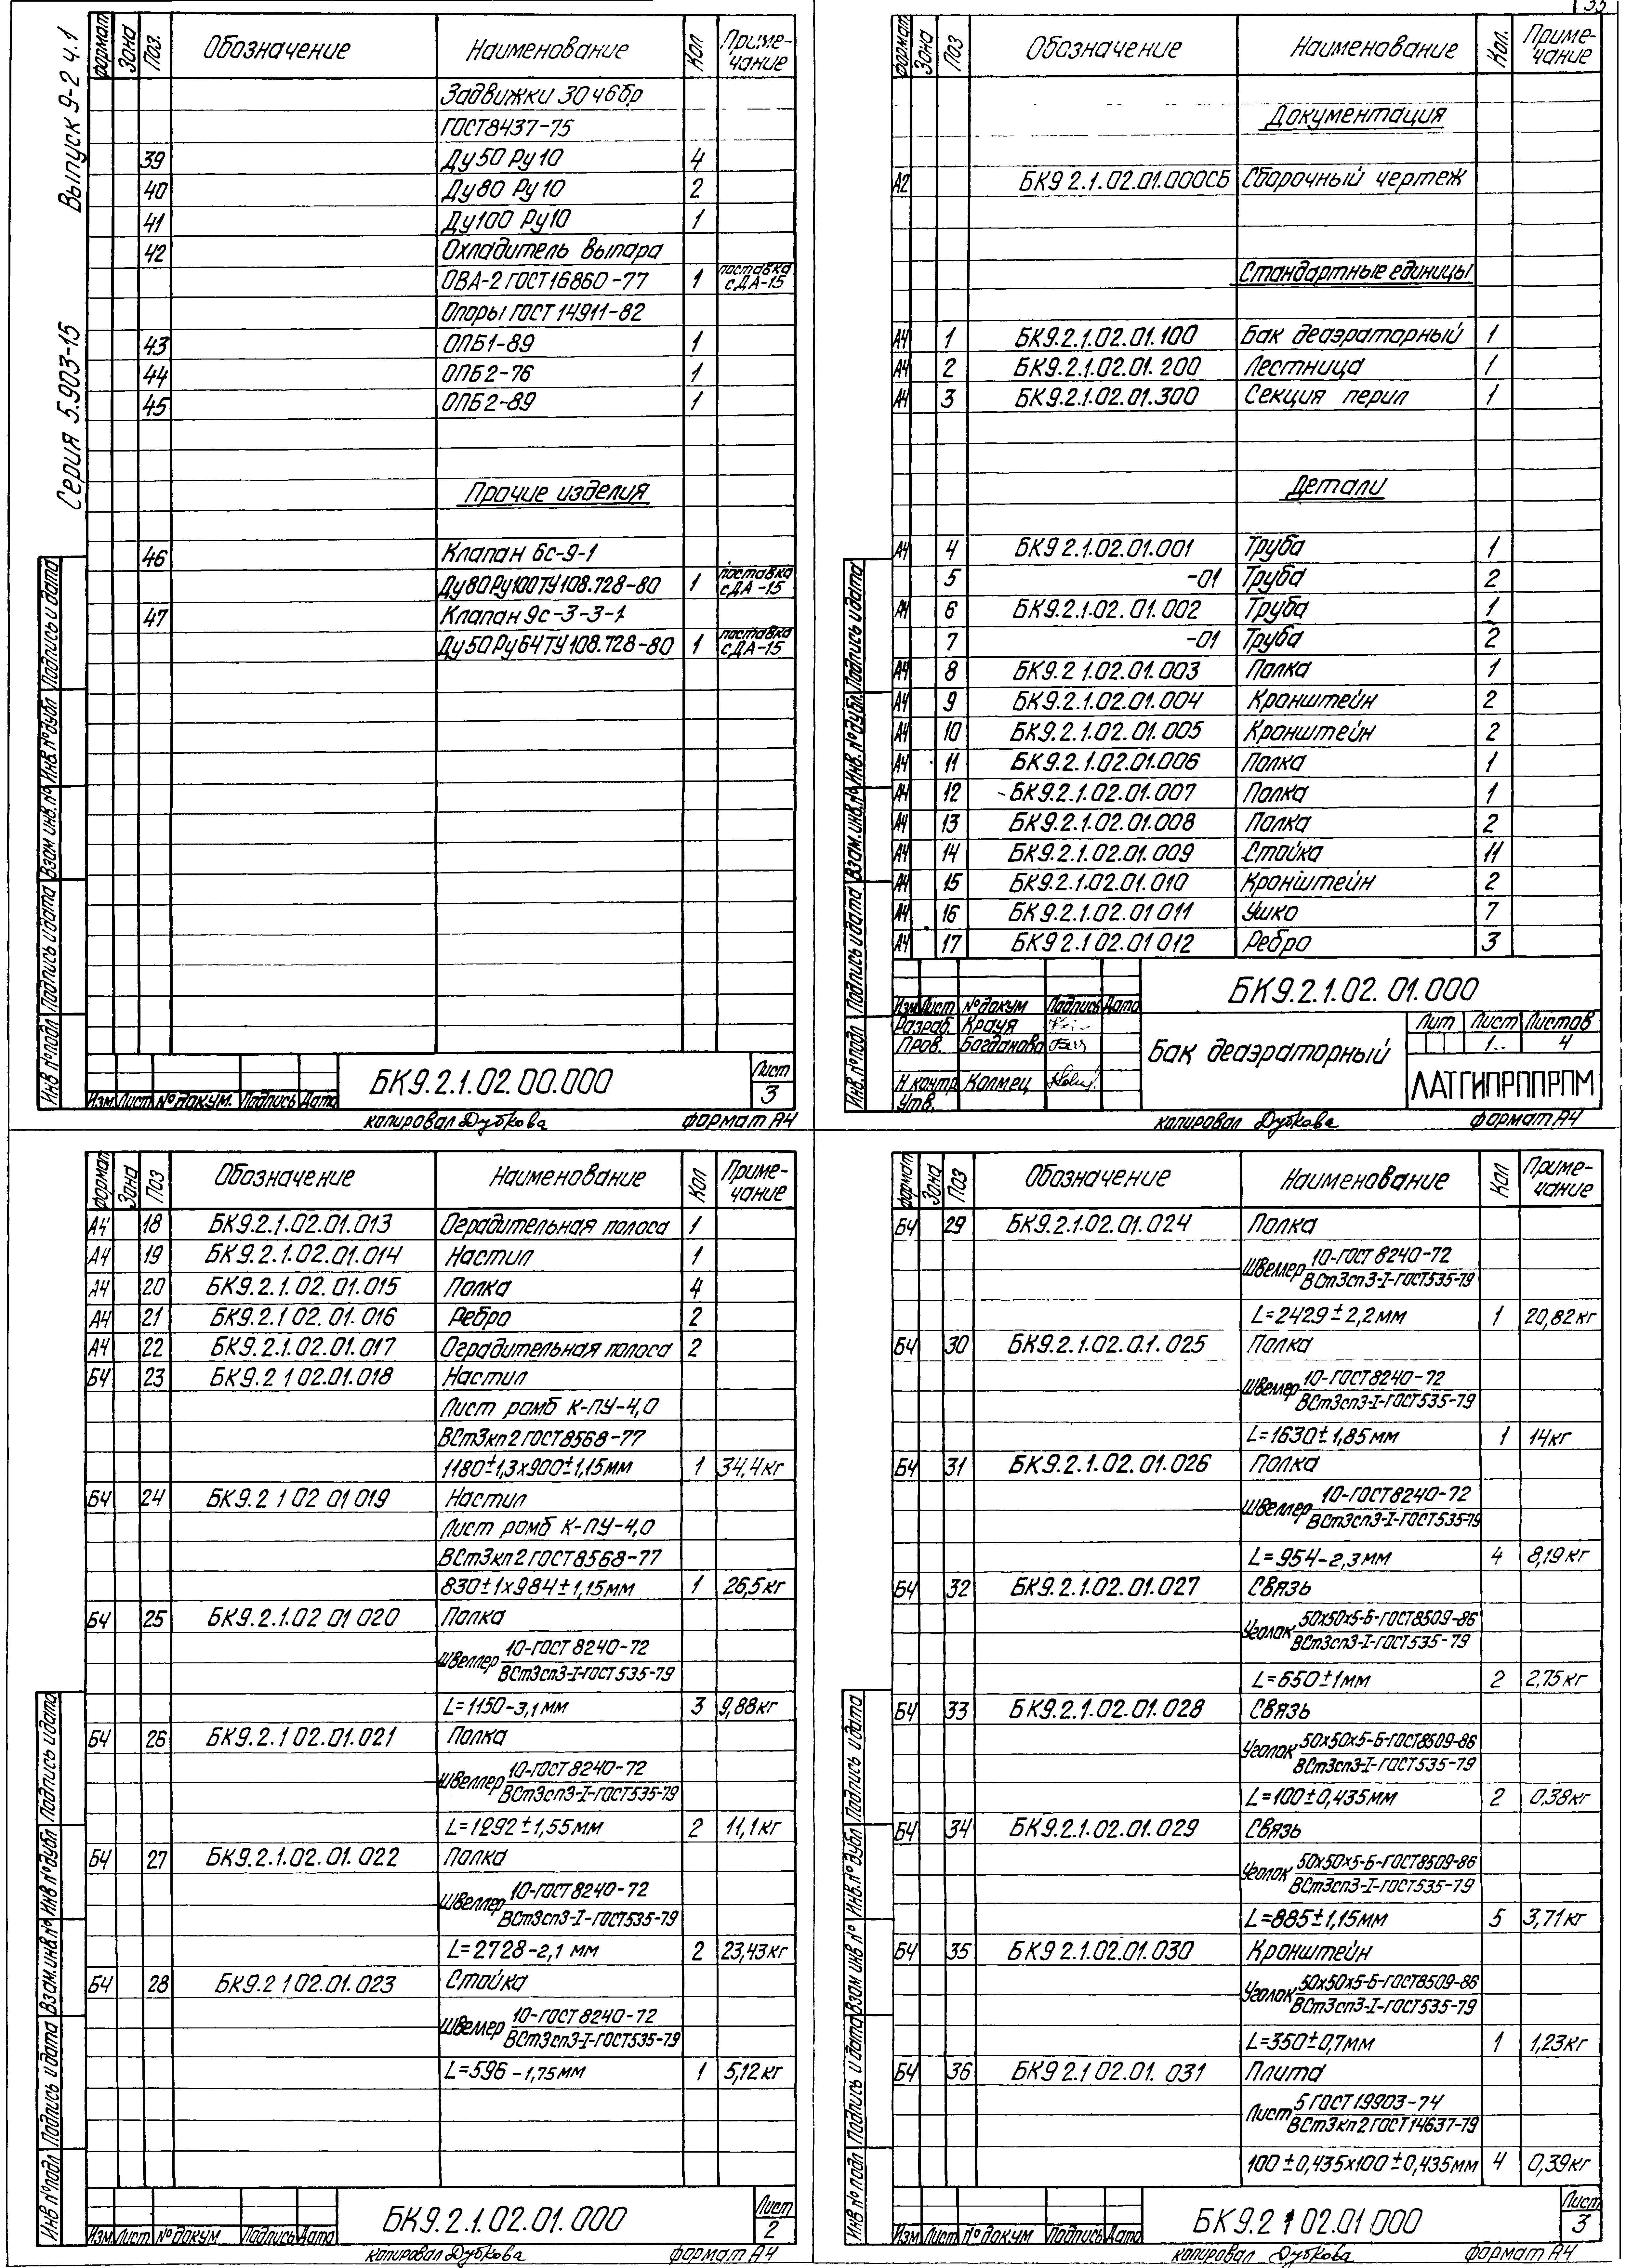 Серия 5.903-15 Выпуск 9-2 ч.1
33
формат Зона Поз. Обозначение Наименование Кол Примечание
Задвижки 30ч6бр
ГОСТ8437-75
39 Ду50 Ру10 4
40 Ду80 Ру10 2
41 Ду100 Ру10 1
42 Охладитель выпара
ОВА-2 ГОСТ16860-77 1 поставка с ДА-15
Опоры ГОСТ 14911-82
43 ОПБ1-89 1
44 ОПБ2-76 1
45 ОПБ2-89 1
Прочие изделия
46 Клапан 6с-9-1
Ду80Ру100ТУ108.728-80 1 поставка с ДА-15
47 Клапан 9с-3-3-1
Ду50Ру64ТУ108.728-80 1 поставка с ДА-15
Инв №подл Подпись и дата Взам инв.№ Инв №дубл Подпись и дата
Изм Лист №докум. Подпись Дата
БК9.2.1.02.00.000
Лист
3
копировал Дубкова формат А4
формат Зона Поз Обозначение Наименование Кол. Примечание
Документация
А2 БК9 2.1.02.01.000СБ Сборочный чертеж
Стандартные единицы
А4 1 БК9.2.1.02.01.100 Бак деаэраторный 1
А4 2 БК9.2.1.02.01.200 Лестница 1
А4 3 БК9.2.1.02.01.300 Секция перил 1
Детали
А4 4 БК9 2.1.02.01.001 Труба 1
5 -01 Труба 2
А4 6 БК9.2.1.02.01.002 Труба 1
7 -01 Труба 2
А4 8 БК9.2 1.02.01.003 Полка 1
А4 9 БК9.2.1.02.01.004 Кронштейн 2
А4 10 БК9.2.1.02.01.005 Кронштейн 2
А4 11 БК9.2.1.02.01.006 Полка 1
А4 12 БК9.2.1.02.01.007 Полка 1
А4 13 БК9.2.1.02.01.008 Полка 2
А4 14 БК9.2.1.02.01.009 Стойка 11
А4 15 БК9.2.1.02.01.010 Кронштейн 2
А4 16 БК9.2.1.02.01 011 Ушко 7
А4 17 БК9 2.1 02.01 012 Ребро 3
Инв.№подл Подпись и дата Взам.инв.№ Инв.№дубл. Подпись и дата
БК9.2.1.02.01.000
Изм Лист №докум Подпись Дата
Разраб. Крауя
Пров. Богданова
Н контр Калмец
Утв.
Бак деаэраторный
Лит Лист Листов
1.. 4
ЛАТГИПРППРПМ
копировал Дубкова формат А4
формат Зона Поз Обозначение Наименование Кол Примечание
А4 18 БК9.2.1.02.01.013 Оградительная полоса 1
А4 19 БК9.2.1.02.01.014 Настил 1
А4 20 БК9.2.1.02.01.015 Полка 4
А4 21 БК9.2.1 02.01.016 Ребро 2
А4 22 БК9.2.1.02.01.017 Оградительная полоса 2
БЧ 23 БК9.2 1 02.01.018 Настил
Лист ромб К-ПУ-4,0
ВСт3кп2 ГОСТ8568-77
1180±1,3х900±1,15мм 1 34,4кг
БЧ 24 БК9.2 1 02 01 019 Настил
Лист ромб К-ПУ-4,0
ВСт3кп2 ГОСТ8568-77
830±1х984±1,15мм 1 26,5кг
БЧ 25 БК9.2.1.02 01 020 Полка
Швеллер 10-ГОСТ 8240-72
ВСт3сп3-I-ГОСТ535-79
L=1150-3,1мм 3 9,88кг
БЧ 26 БК9.2.1 02.01.021 Полка
Швеллер 10-ГОСТ8240-72
ВСт3сп3-I-ГОСТ535-79
L=1292±1,55мм 2 11,1кг
БЧ 27 БК9.2.1.02.01.022 Полка
Швеллер 10-ГОСТ8240-72
ВСт3сп3-I-ГОСТ535-79
L=2728-2,1 мм 2 23,43кг
БЧ 28 БК9.2 1 02.01.023 Стойка
Швеллер 10-ГОСТ8240-72
ВСт3сп3-I-ГОСТ535-79
L=596-1,75мм 1 5,12кг
Инв №подл Подпись и дата Взам.инв.№ Инв №дубл Подпись и дата
Изм Лист №докум Подпись Дата
БК9.2.1.02.01.000
Лист
2
копировал Дубкова формат А4
формат Зона Поз Обозначение Наименование Кол Примечание
БЧ 29 БК9.2.1.02.01.024 Полка
Швеллер 10-ГОСТ 8240-72
ВСт3сп3-I-ГОСТ535-79
L=2429±2,2мм 1 20,82кг
БЧ 30 БК9.2.1.02.0.1.025 Полка
Швеллер 10-ГОСТ8240-72
ВСт3сп3-I-ГОСТ535-79
L=1630±1,85мм 1 14кг
БЧ 31 БК9.2.1.02.01.026 Полка
Швеллер 10-ГОСТ8240-72
ВСт3сп3-I-ГОСТ535-79
L=954-2,3мм 4 8,19кг
БЧ 32 БК9.2.1.02.01.027 Связь
Уголок 50х50х5-Б-ГОСТ8509-86
ВСт3сп3-I-ГОСТ535-79
L=650±1мм 2 2,75кг
БЧ 33 БК9.2.1.02.01.028 Связь
Уголок 50х50х5-Б-ГОСТ8509-86
ВСт3сп3-I-ГОСТ535-79
L=100±0,435мм 2 0,38кг
БЧ 34 БК9.2.1.02.01.029 Связь
Уголок 50х50х5-Б-ГОСТ8509-86
ВСт3сп3-I-ГОСТ535-79
L=885±1,15мм 5 3,71кг
БЧ 35 БК9 2.1.02.01.030 Кронштейн
Уголок 50х50х5-Б-ГОСТ8509-86
ВСт3сп3-I-ГОСТ535-79
L=350±0,7мм 1 1,23кг
БЧ 36 БК9 2.1 02.01.031 Плита
Лист 5 ГОСТ 19903-74
ВСт3кп2 ГОСТ 14637-79
100±0,435х100±0,435мм 4 0,39кг
Инв №подл Подпись и дата Взам инв № Инв.№дубл Подпись и дата
Изм Лист №докум Подпись Дата
БК9.2 1 02.01 000
Лист
3
копировал Дубкова формат А4